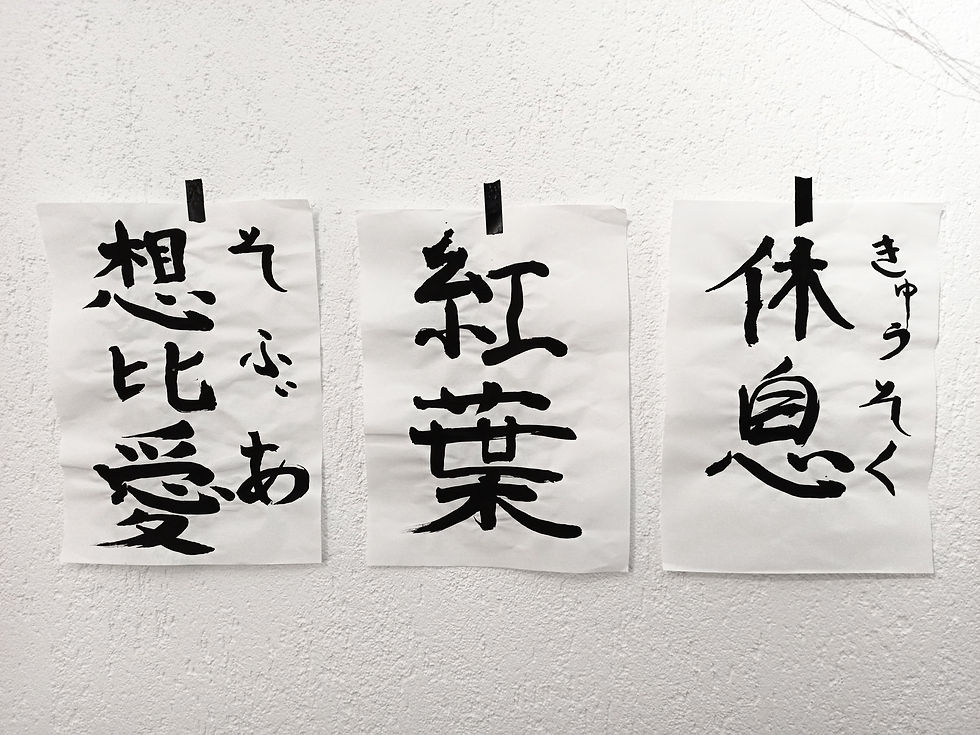 想比愛
そぶあ
紅葉
休息
きゅうそく